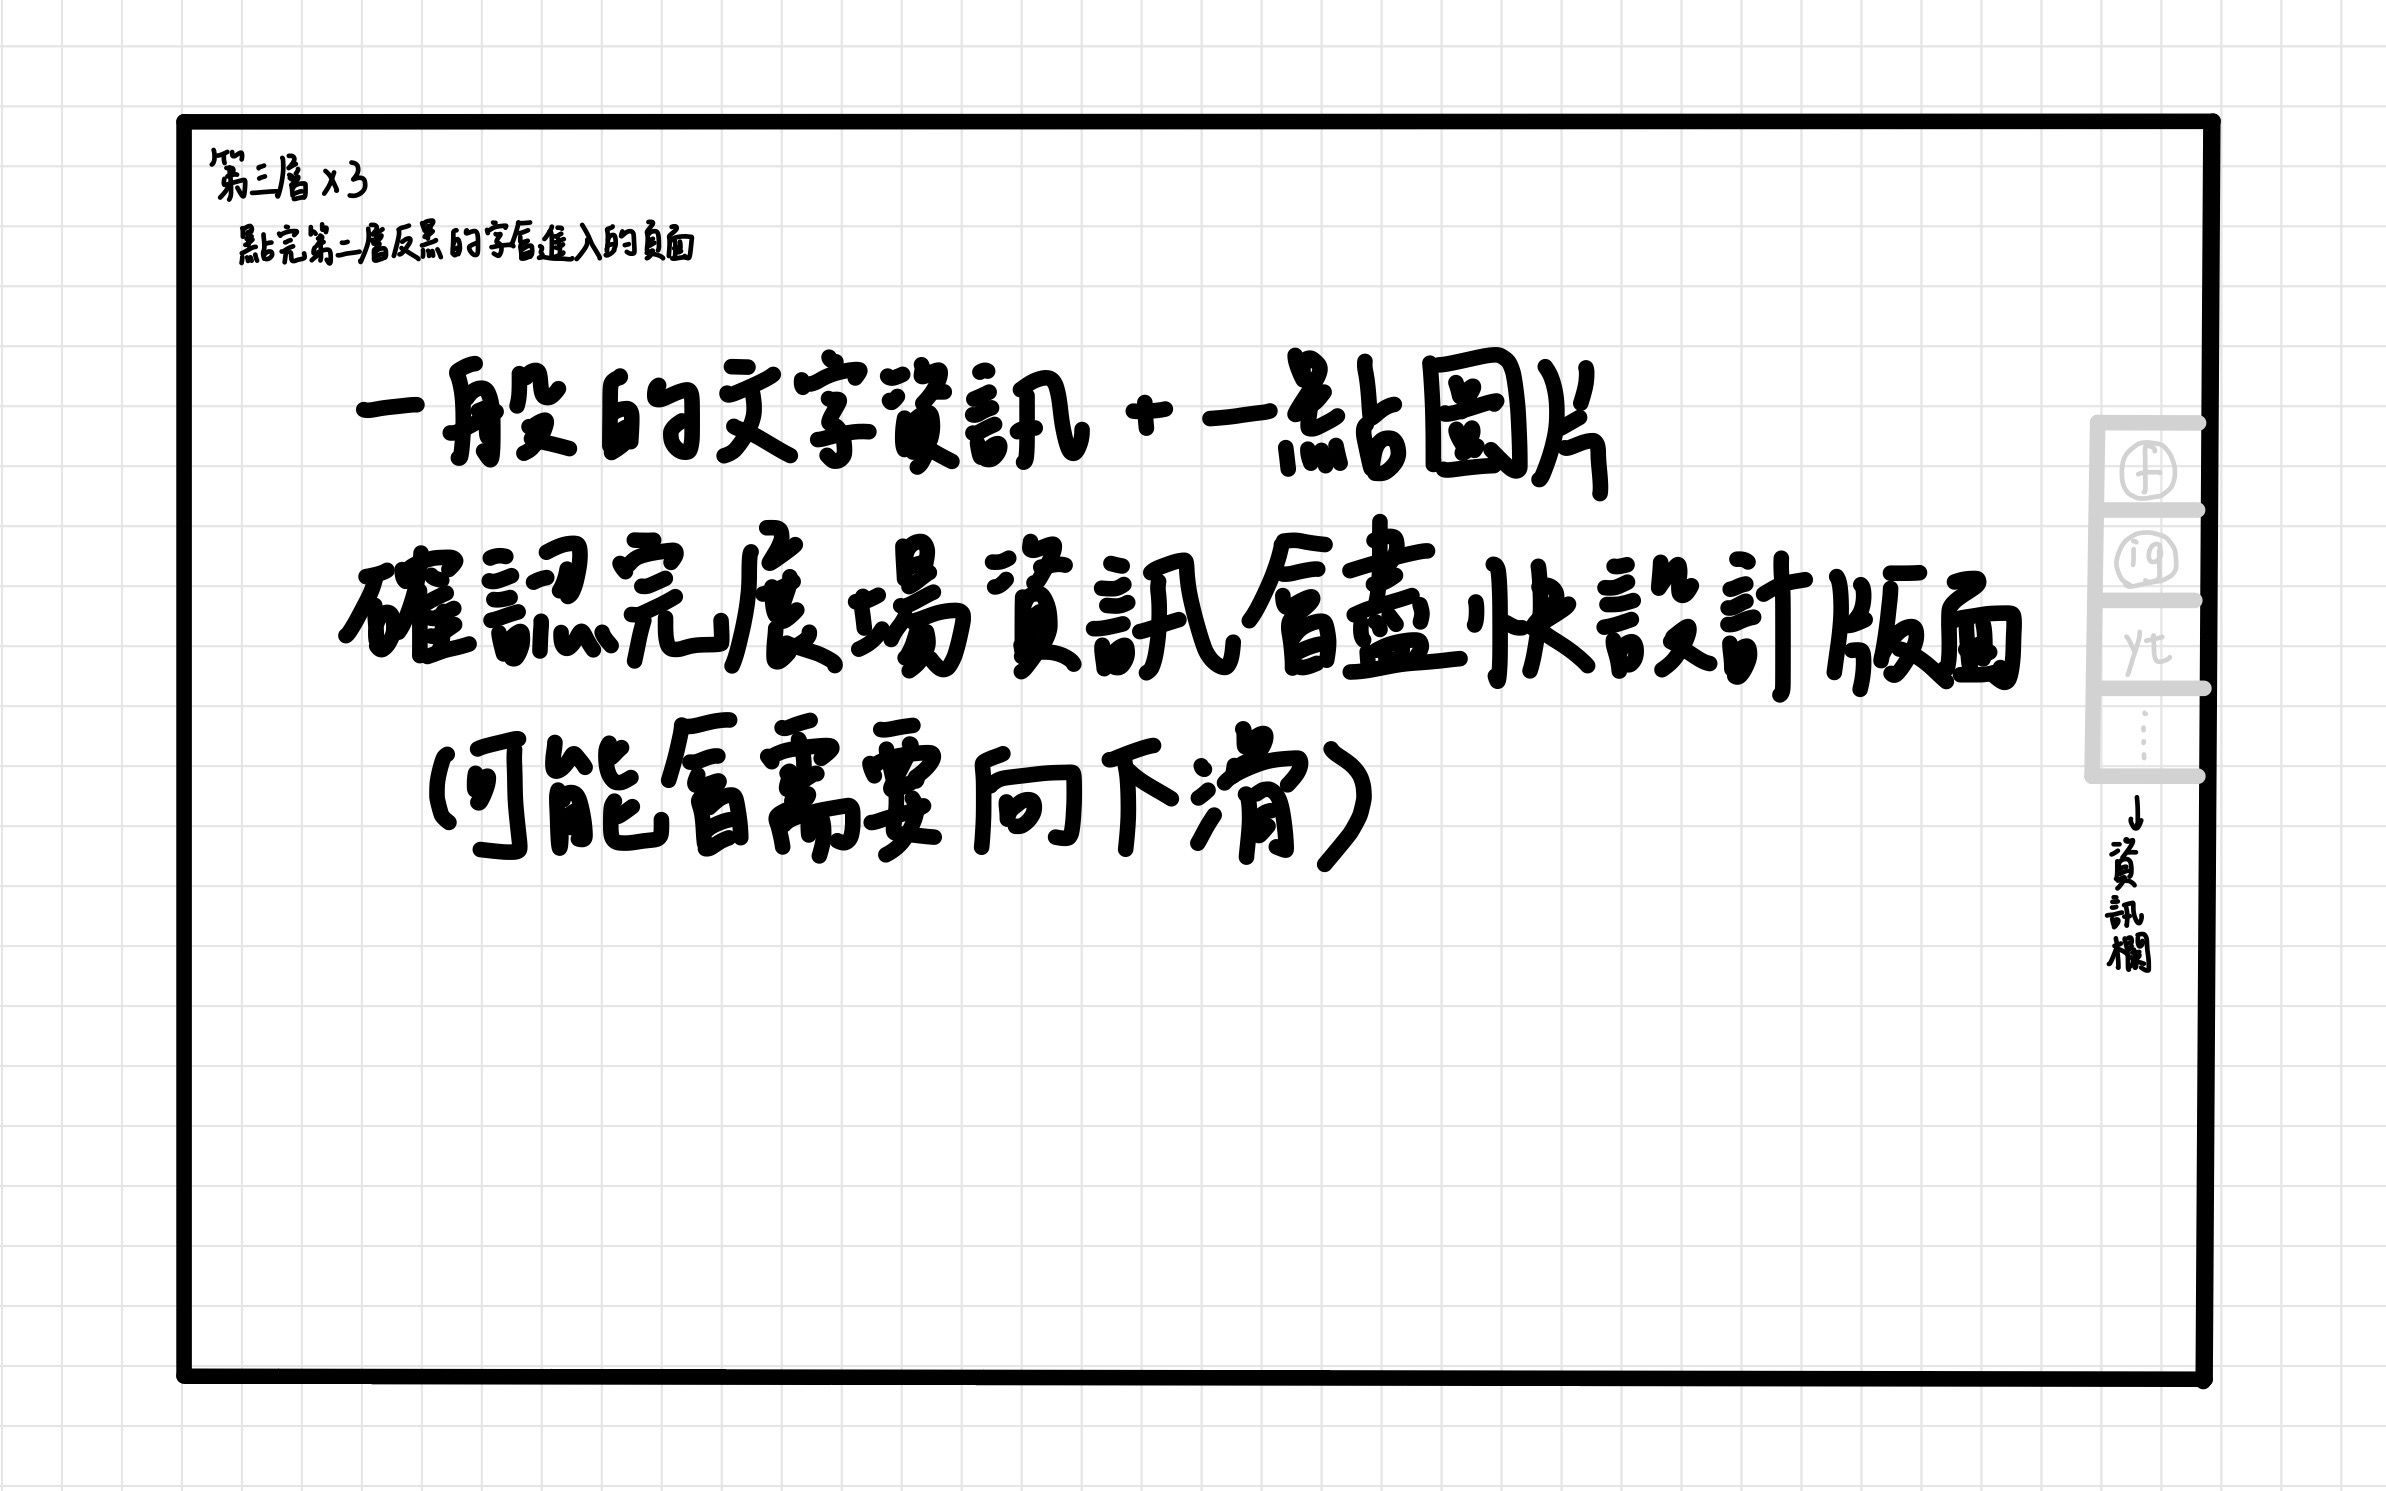 第三層 x3
點完第二層反黑的字會進入的頁面
一般的文字資訊 + 一點圖片
確認完展場資訊會盡快設計版面
(可能會需要向下滑)
f
ig
yt
→資訊欄